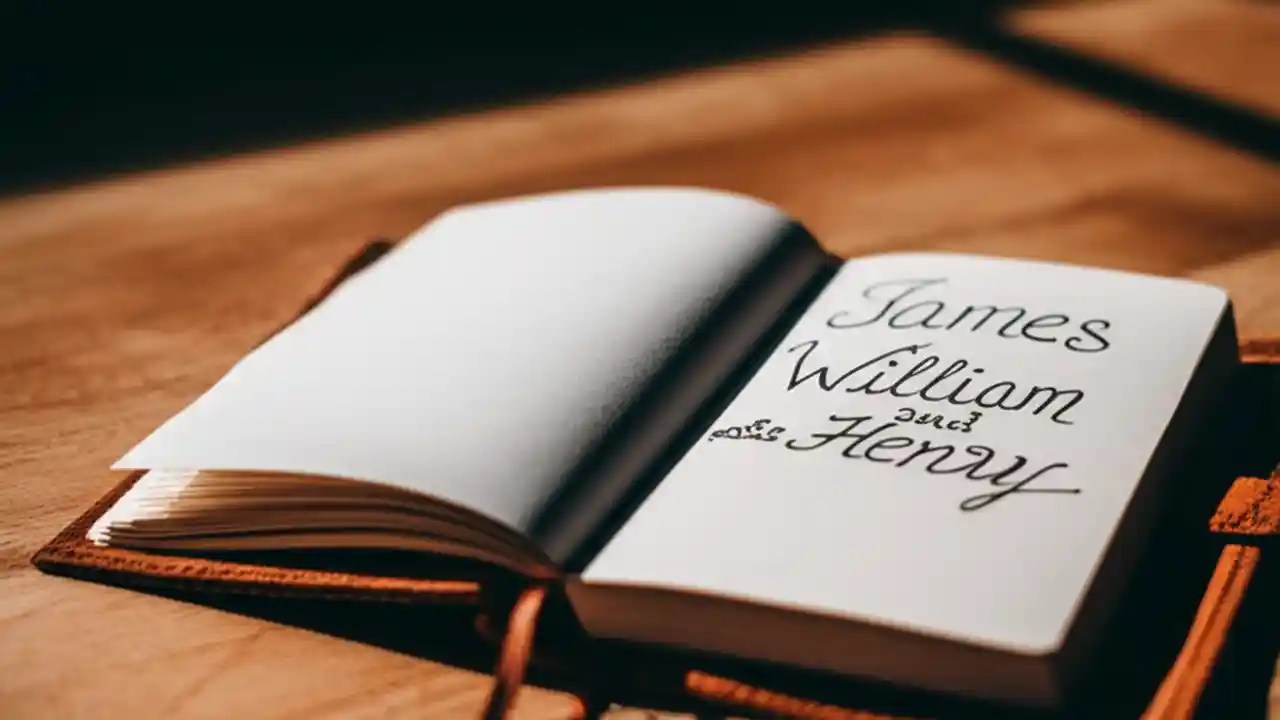 James
William
and
Henry